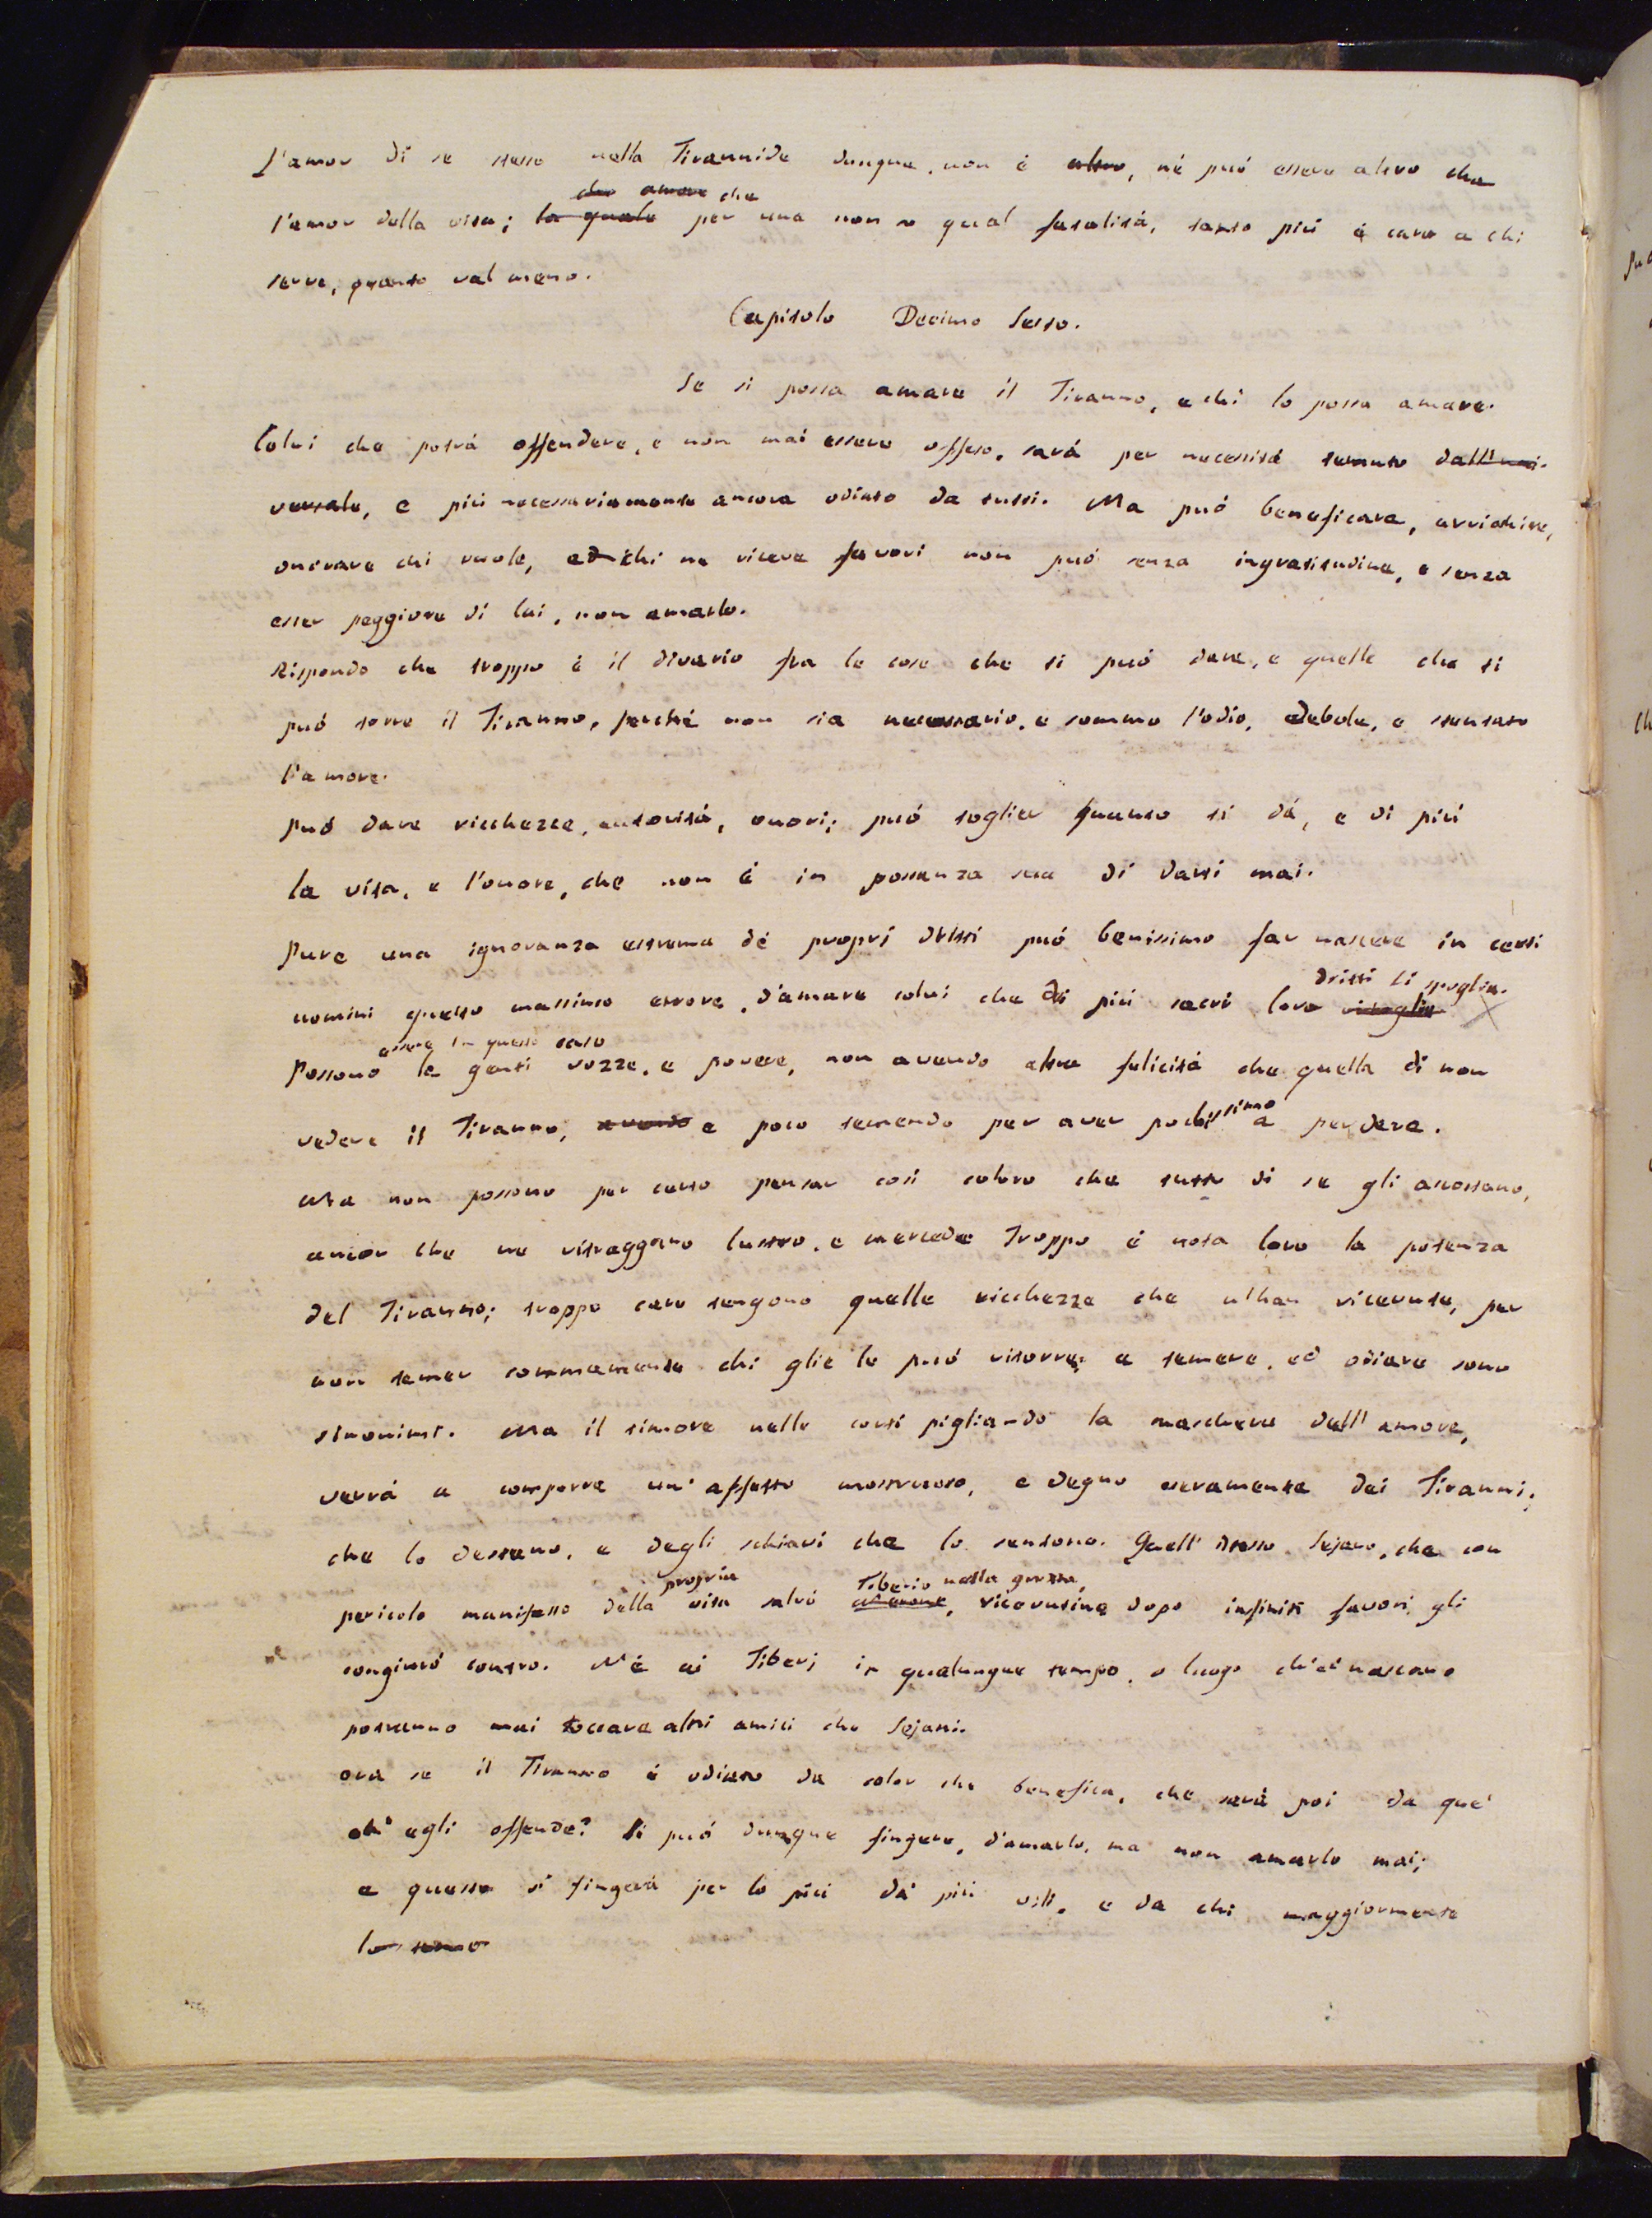 L'amor di se stesso nella Tirannide dunque, non è altro, né può essere altro che
che amore che
l'amor della vita; la quale per una non so qual fatalità, tanto più è cara a chi
serve, quanto val meno.
Capitolo Decimo Sesto.
Se si possa amare il Tiranno, e chi lo possa amare.
Colui che potrà offendere, e non mai essere offeso, sarà per necessità temuto dall'uni-
versale, e più necessariamente ancora odiato da tutti. Ma può beneficare, arrichire,
onorare chi vuole, ed chi ne riceve favori non può senza ingratitudine, e senza
esser peggiore di lui, non amarlo.
Rispondo che troppo è il divario fra le cose che si può dare, e quelle che si
può torre il Tiranno, perché non sia necessario, e sommo l'odio, debole, e stentato
l'amore.
può dare ricchezze, autorità, onori; può toglier quanto si dà, e di più
la vita, e l'onore, che non è in possanza sua di darsi mai.
Pure una ignoranza estrema dé propri dritti può benissimo far nascere in certi
dritti li spoglia.
uomini questo massimo errore, d'amare colui che di più sacri loro ritoglie
essere in questo caso
Possono le genti rozze, e povere, non avendo altra felicità che quella di non
vedere il Tiranno, avendo e poco temendo per aver pochissimo a perdere.
Ma non possono per certo pensar così coloro che tutto di se gli accostano,
ancor che ne ritraggano lustro, e mercede Troppo è nota loro la potenza
del Tiranno; troppo care tengono quelle ricchezze che n'han ricevute, per
non temer sommamente chi glie le può ritorre; e temere, ed odiare sono
sinonimi. Ma il timore nelle corti pigliando la maschera dell'amore,
verrà a comporre un' affetto mostruoso, e degno veramente dei Tiranni,
che lo destano, e degli schiavi che lo sentono. Quell' stesso Sejano, che con
propria Tiberio nella grotta,
pericolo manifesto della vita salvò , ricevutine dopo infiniti favori gli
congiurò contro. Né ai Tiberj in qualunque tempo, o luogo ch'ei nascano
potranno mai toccare altri amici che Sejani.
ora se il Tiranno è odiato da color che benefica, che sarà poi da que'
ch' egli offende? Si può dunque fingere, d'amarlo, ma non amarlo mai;
e questo si fingerà per lo più da' più vili, e da chi maggiormente
lo teme